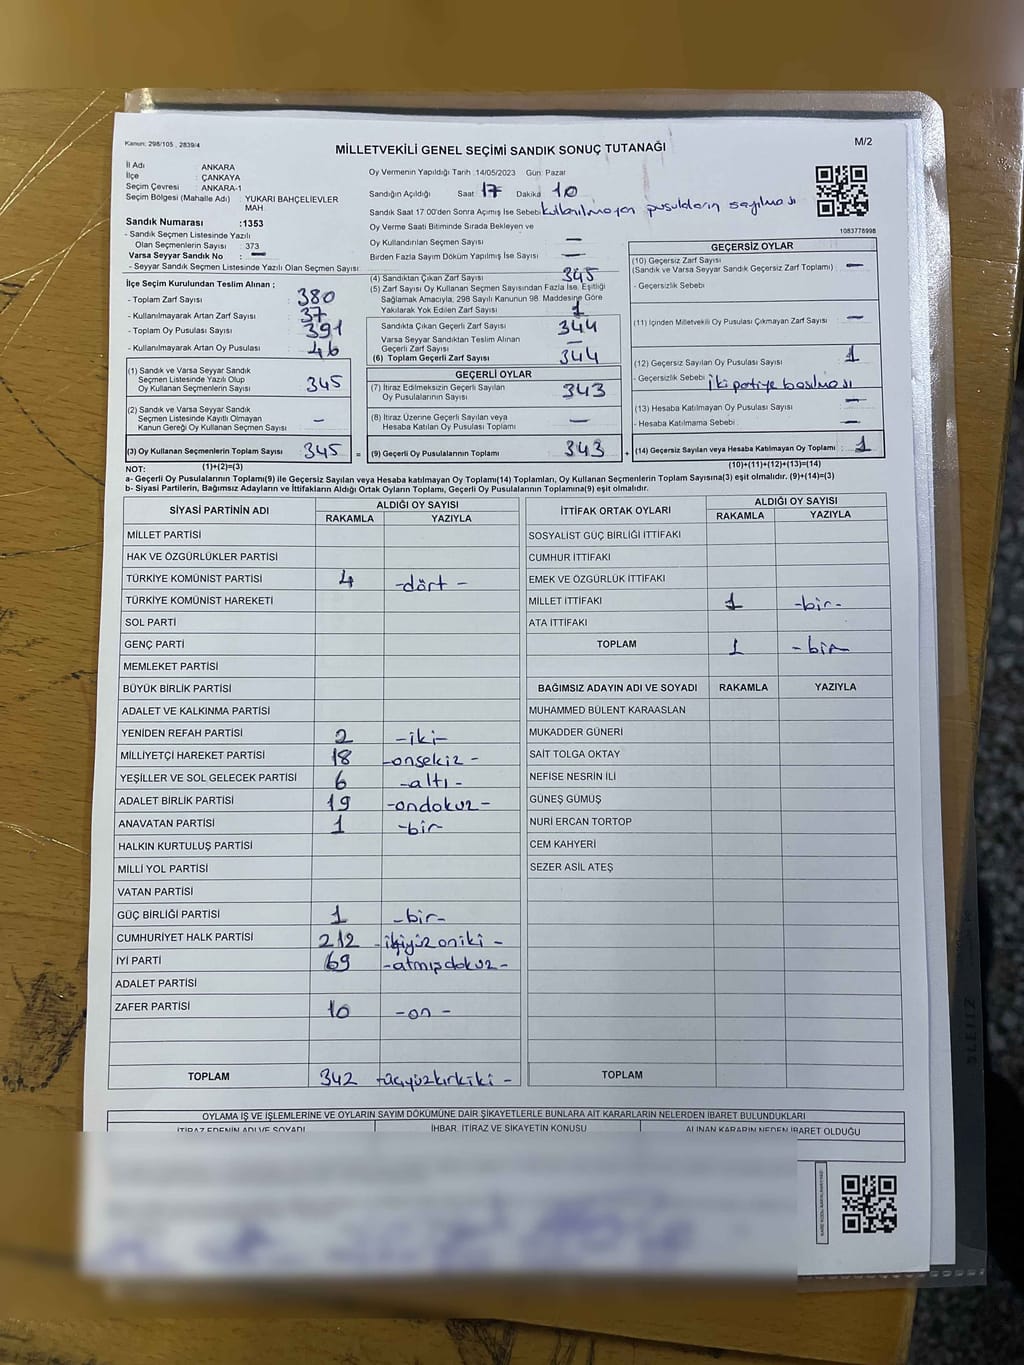 Kanun: 298/105 , 2839/4
M/2
MİLLETVEKİLİ GENEL SEÇİMİ SANDIK SONUÇ TUTANAĞI
İl Adı ANKARA
İlçe : ÇANKAYA
Seçim Çevresi : ANKARA-1
Seçim Bölgesi (Mahalle Adı) : YUKARI BAHÇELİEVLER MAH
Sandık Numarası :1353
- Sandık Seçmen Listesinde Yazılı
Olan Seçmenlerin Sayısı : 373
Varsa Seyyar Sandık No : —
- Seyyar Sandık Seçmen Listesinde Yazılı Olan Seçmen Sayısı
Oy Vermenin Yapıldığı Tarih :14/05/2023 Gün: Pazar
Sandığın Açıldığı Saat 17 Dakika 10
Sandık Saat 17:00'den Sonra Açımış İse Sebebi kullanılmayan pusulaların sayılması
Oy Verme Saati Bitiminde Sırada Bekleyen ve
Oy Kullandırılan Seçmen Sayısı —
Birden Fazla Sayım Döküm Yapılmış İse Sayısı —
1083778998
İlçe Seçim Kurulundan Teslim Alınan ;
- Toplam Zarf Sayısı : 380
- Kullanılmayarak Artan Zarf Sayısı : 37
- Toplam Oy Pusulası Sayısı : 391
- Kullanılmayarak Artan Oy Pusulası : 46
(1) Sandık ve Varsa Seyyar Sandık
Seçmen Listesinde Yazılı Olup
Oy Kullanan Seçmenlerin Sayısı : 345
(2) Sandık ve Varsa Seyyar Sandık
Seçmen Listesinde Kayıtlı Olmayan
Kanun Gereği Oy Kullanan Seçmen Sayısı : —
(3) Oy Kullanan Seçmenlerin Toplam Sayısı : 345 =
(4) Sandıktan Çıkan Zarf Sayısı 345
(5) Zarf Sayısı Oy Kullanan Seçmen Sayısından Fazla İse, Eşitliği
Sağlamak Amacıyla, 298 Sayılı Kanunun 98. Maddesine Göre
Yakılarak Yok Edilen Zarf Sayısı : 1
Sandıkta Çıkan Geçerli Zarf Sayısı 344
Varsa Seyyar Sandıktan Teslim Alınan
Geçerli Zarf Sayısı —
(6) Toplam Geçerli Zarf Sayısı 344
GEÇERLİ OYLAR
(7) İtiraz Edilmeksizin Geçerli Sayılan
Oy Pusulalarının Sayısı 343
(8) İtiraz Üzerine Geçerli Sayılan veya
Hesaba Katılan Oy Pusulası Toplamı —
(9) Geçerli Oy Pusulalarının Toplamı 343 +
GEÇERSİZ OYLAR
(10) Geçersiz Zarf Sayısı
(Sandık ve Varsa Seyyar Sandık Geçersiz Zarf Toplamı) —
- Geçersizlik Sebebi
(11) İçinden Milletvekili Oy Pusulası Çıkmayan Zarf Sayısı —
(12) Geçersiz Sayılan Oy Pusulası Sayısı 1
- Geçersizlik Sebebi İki partiye basılması
(13) Hesaba Katılmayan Oy Pusulası Sayısı —
- Hesaba Katılmama Sebebi —
(14) Geçersiz Sayılan veya Hesaba Katılmayan Oy Toplamı : 1
NOT: (1)+(2)=(3) (10)+(11)+(12)+(13)=(14)
a- Geçerli Oy Pusulalarının Toplamı(9) ile Geçersiz Sayılan veya Hesaba Katılmayan Oy Toplam(14) Toplamları, Oy Kullanan Seçmenlerin Toplam Sayısına(3) eşit olmalıdır. (9)+(14)=(3)
b- Siyasi Partilerin, Bağımsız Adayların ve İttifakların Aldığı Ortak Oyların Toplamı, Geçerli Oy Pusulalarının Toplamına(9) eşit olmalıdır.
SİYASİ PARTİNİN ADI ALDIĞI OY SAYISI
RAKAMLA YAZIYLA
MİLLET PARTİSİ
HAK VE ÖZGÜRLÜKLER PARTİSİ
TÜRKİYE KOMÜNİST PARTİSİ 4 -dört-
TÜRKİYE KOMÜNİST HAREKETİ
SOL PARTİ
GENÇ PARTİ
MEMLEKET PARTİSİ
BÜYÜK BİRLİK PARTİSİ
ADALET VE KALKINMA PARTİSİ
YENİDEN REFAH PARTİSİ 2 -iki-
MİLLİYETÇİ HAREKET PARTİSİ 18 -onsekiz-
YEŞİLLER VE SOL GELECEK PARTİSİ 6 -altı-
ADALET BİRLİK PARTİSİ 19 -ondokuz-
ANAVATAN PARTİSİ 1 -bir
HALKIN KURTULUŞ PARTİSİ
MİLLİ YOL PARTİSİ
VATAN PARTİSİ
GÜÇ BİRLİĞİ PARTİSİ 1 -bir-
CUMHURİYET HALK PARTİSİ 212 -ikiyüzoniki-
İYİ PARTİ 69 -atmışdokuz-
ADALET PARTİSİ
ZAFER PARTİSİ 10 -on-
TOPLAM 342 -üçyüzkırkiki-
İTTİFAK ORTAK OYLARI ALDIĞI OY SAYISI
RAKAMLA YAZIYLA
SOSYALİST GÜÇ BİRLİĞİ İTTİFAKI
CUMHUR İTTİFAKI
EMEK VE ÖZGÜRLÜK İTTİFAKI
MİLLET İTTİFAKI 1 -bir-
ATA İTTİFAKI
TOPLAM 1 -bir
BAĞIMSIZ ADAYIN ADI VE SOYADI RAKAMLA YAZIYLA
MUHAMMED BÜLENT KARAASLAN
MUKADDER GÜNERİ
SAİT TOLGA OKTAY
NEFİSE NESRİN İLİ
GÜNEŞ GÜMÜŞ
NURİ ERCAN TORTOP
CEM KAHYERİ
SEZER ASİL ATEŞ
TOPLAM
OYLAMA İŞ VE İŞLEMLERİNE VE OYLARIN SAYIM DÖKÜMÜNE DAİR ŞİKAYETLERLE BUNLARA AİT KARARLARIN NELERDEN İBARET BULUNDUKLARI
İTİRAZ EDENİN ADI VE SOYADI İHBAR, İTİRAZ VE ŞİKAYETİN KONUSU ALINAN KARARIN NEDEN İBARET OLDUĞU